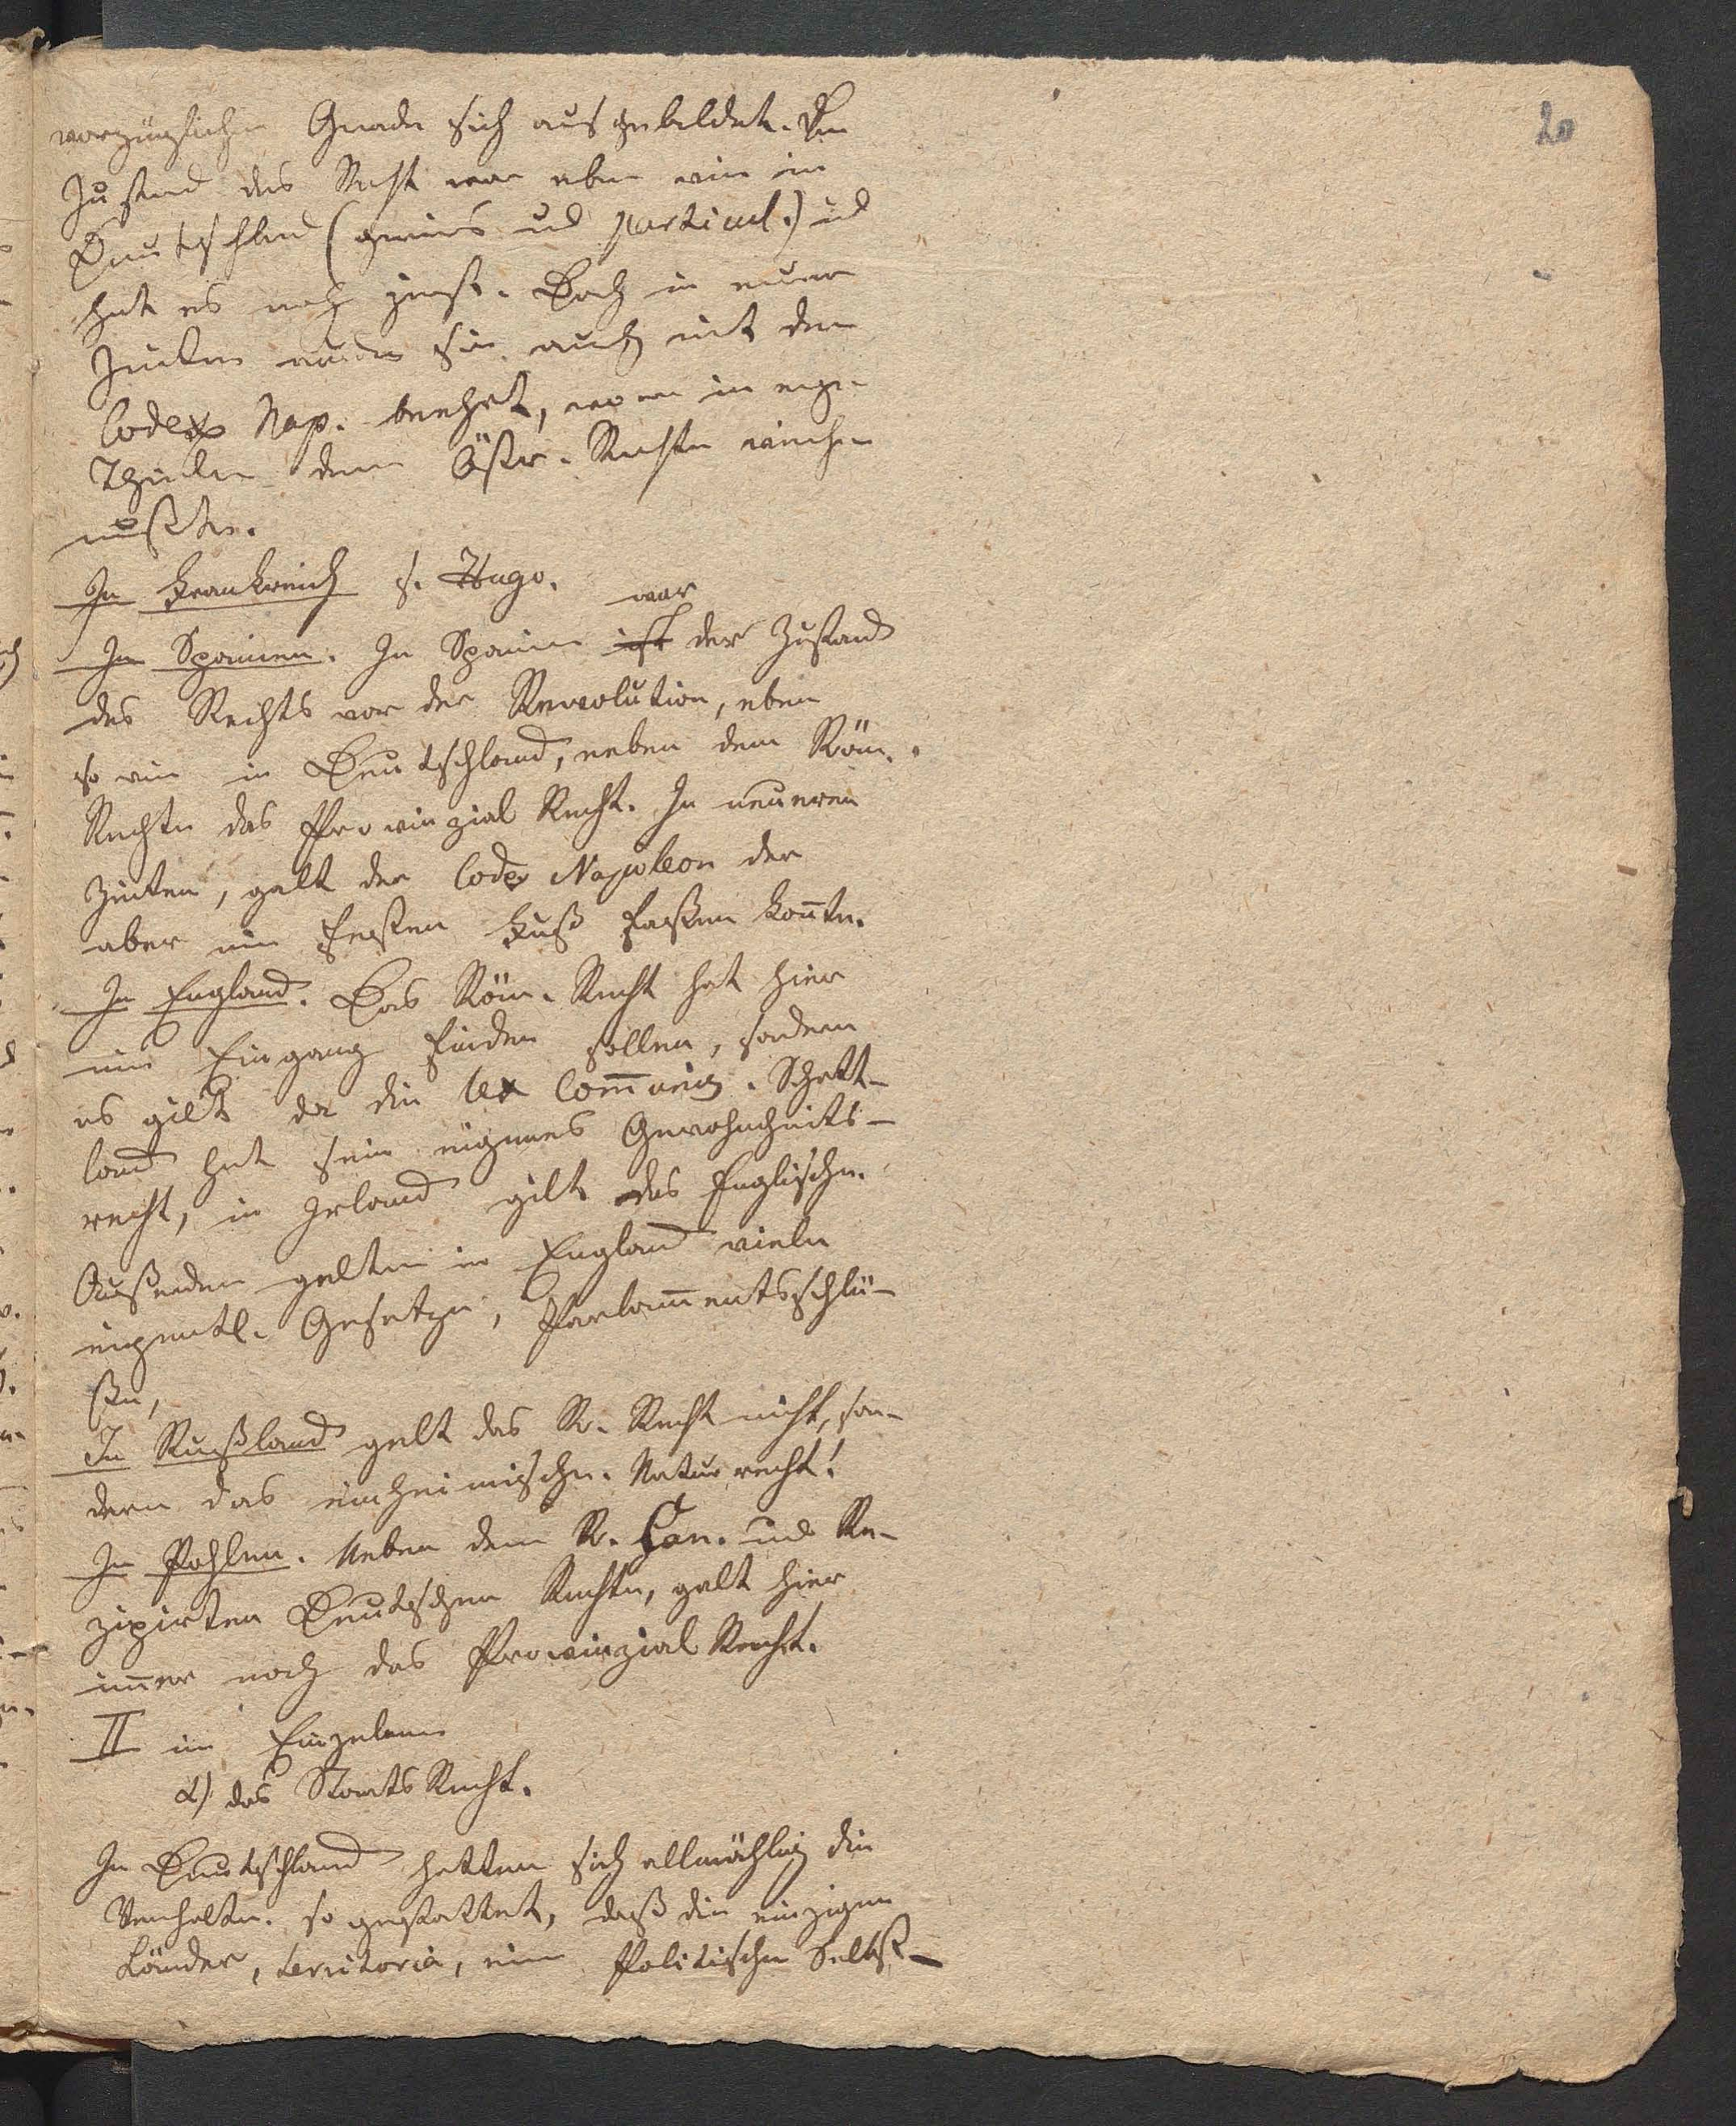 20
vorzüglichen Grade sich ausgebildet. Der
Zustand des Rechts war eben wie in
Deutschland (gemeines und particul.) und
hat es noch jetzt. Doch in neuern
Zeiten wurden sie auch mit dem
Codex Nap. beehrt, worin in eign
Theilen dem Östr. Rechte weichen
mußte.
In Frankreich s. Hugo.
war
In Spanien. In Spanien ist der Zustand
des Rechts vor der Revolution, eben
so wie in Deutschland, neben dem Röm.
Rechte das Provinzial Recht. In neueren
Zeiten, galt der Codex Napoleon der
aber nie festen Fuß faßen konnte.
In England. Das Röm. Recht hat hier
nie Eingang finden sollen, sondern
es gilt da die lex Communis. Schott-
land hat sein eigenes Gewohnheits-
recht, in Irland gilt das Englische.
Außerdem gelten in England viele
eigentl. Gesetze, Parlamentsschlü-
ße,
In Rußland galt das R. Recht nicht, son-
dern das einheimische. Naturrecht!
In Pohlen. Neben dem R. Can. und Re-
zipirten Deutschen Rechte, galt hier
immer noch das Provinzial Recht.
II im Einzelnen
α) das Staats Recht.
In Deutschland hatten sich allmählig die
Verhältn. so gestaltet, daß die einzigen
Länder, territoria, eine Politische Selbst-